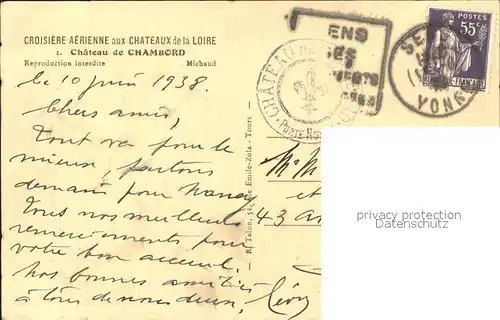 CROISIÈRE AÉRIENNE aux CHATEAUX de la LOIRE
1. Château de CHAMBORD
Reproduction interdite Michaud
Le 10 juin 1938.
Chers amis,
Tout va pour le
mieux, partons
demain pour Nancy
Tous nos meilleurs
remerciements pour
votre bon accueil.
Nos bonnes amitiés
à tous de nous deux,
R. Talon, rue Emile-Zola - Tours -
CHÂTEAU
ENS
POSTES
55c
FRANÇAISE
SE
YONNE
M M
et
43
privacy protection
Datenschutz